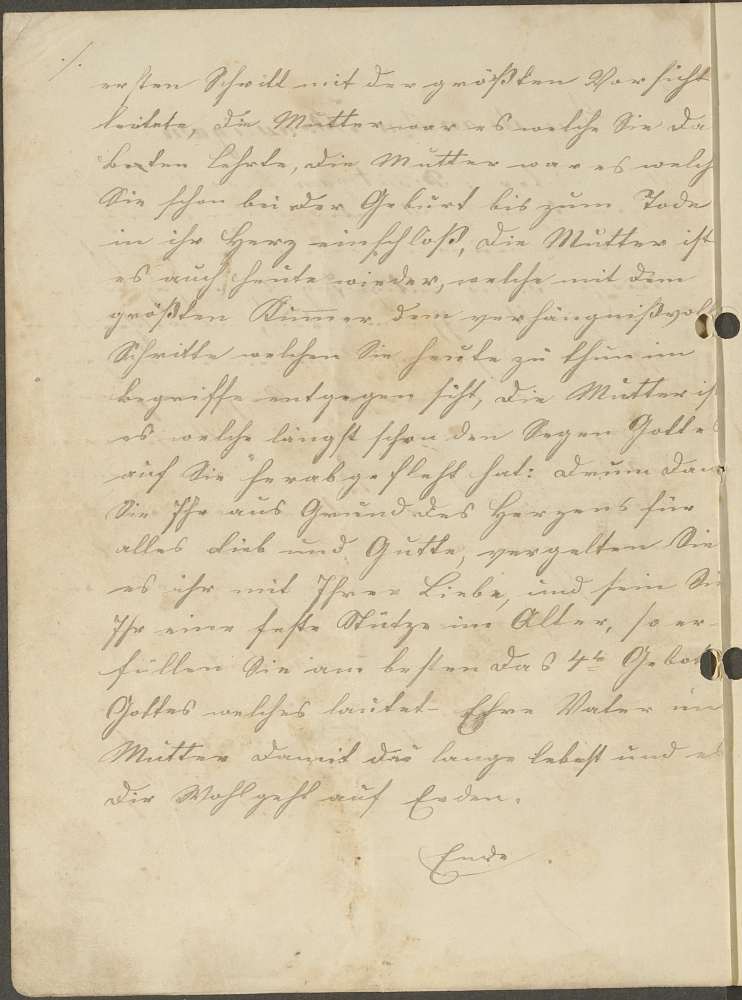 ./.
ersten Schritt mit der größten Vorsicht
leitete, die Mutter war es welche Sie da
beten lehrte, die Mutter war es welch
Sie schon bei der Geburt bis zum Tode
in ihr Herz einschloß, die Mutter ist
es auch heute wieder, welche mit dem
größten Kummer dem verhängnißvoll
Schritte welchen Sie heute zu thun im
begriffe entgegen siht, die Mutter is
es welche längst schon den Segen Gottes
auf Sie herabgefleht hat: drum dan
Sie Ihr aus Grund des Herzens für
alles Lieb und Gutte, vergelten Sie
es ihr mit Ihrer Liebe, und sein Si
Ihr eine feste Stütze im Alter, so er-
füllen Sie am besten das 4te Gebot
Gottes welches lautet- Ehre Vater un
Mutter damit du lange lebest und es
dir Wohl geht auf Erden.
Ende.